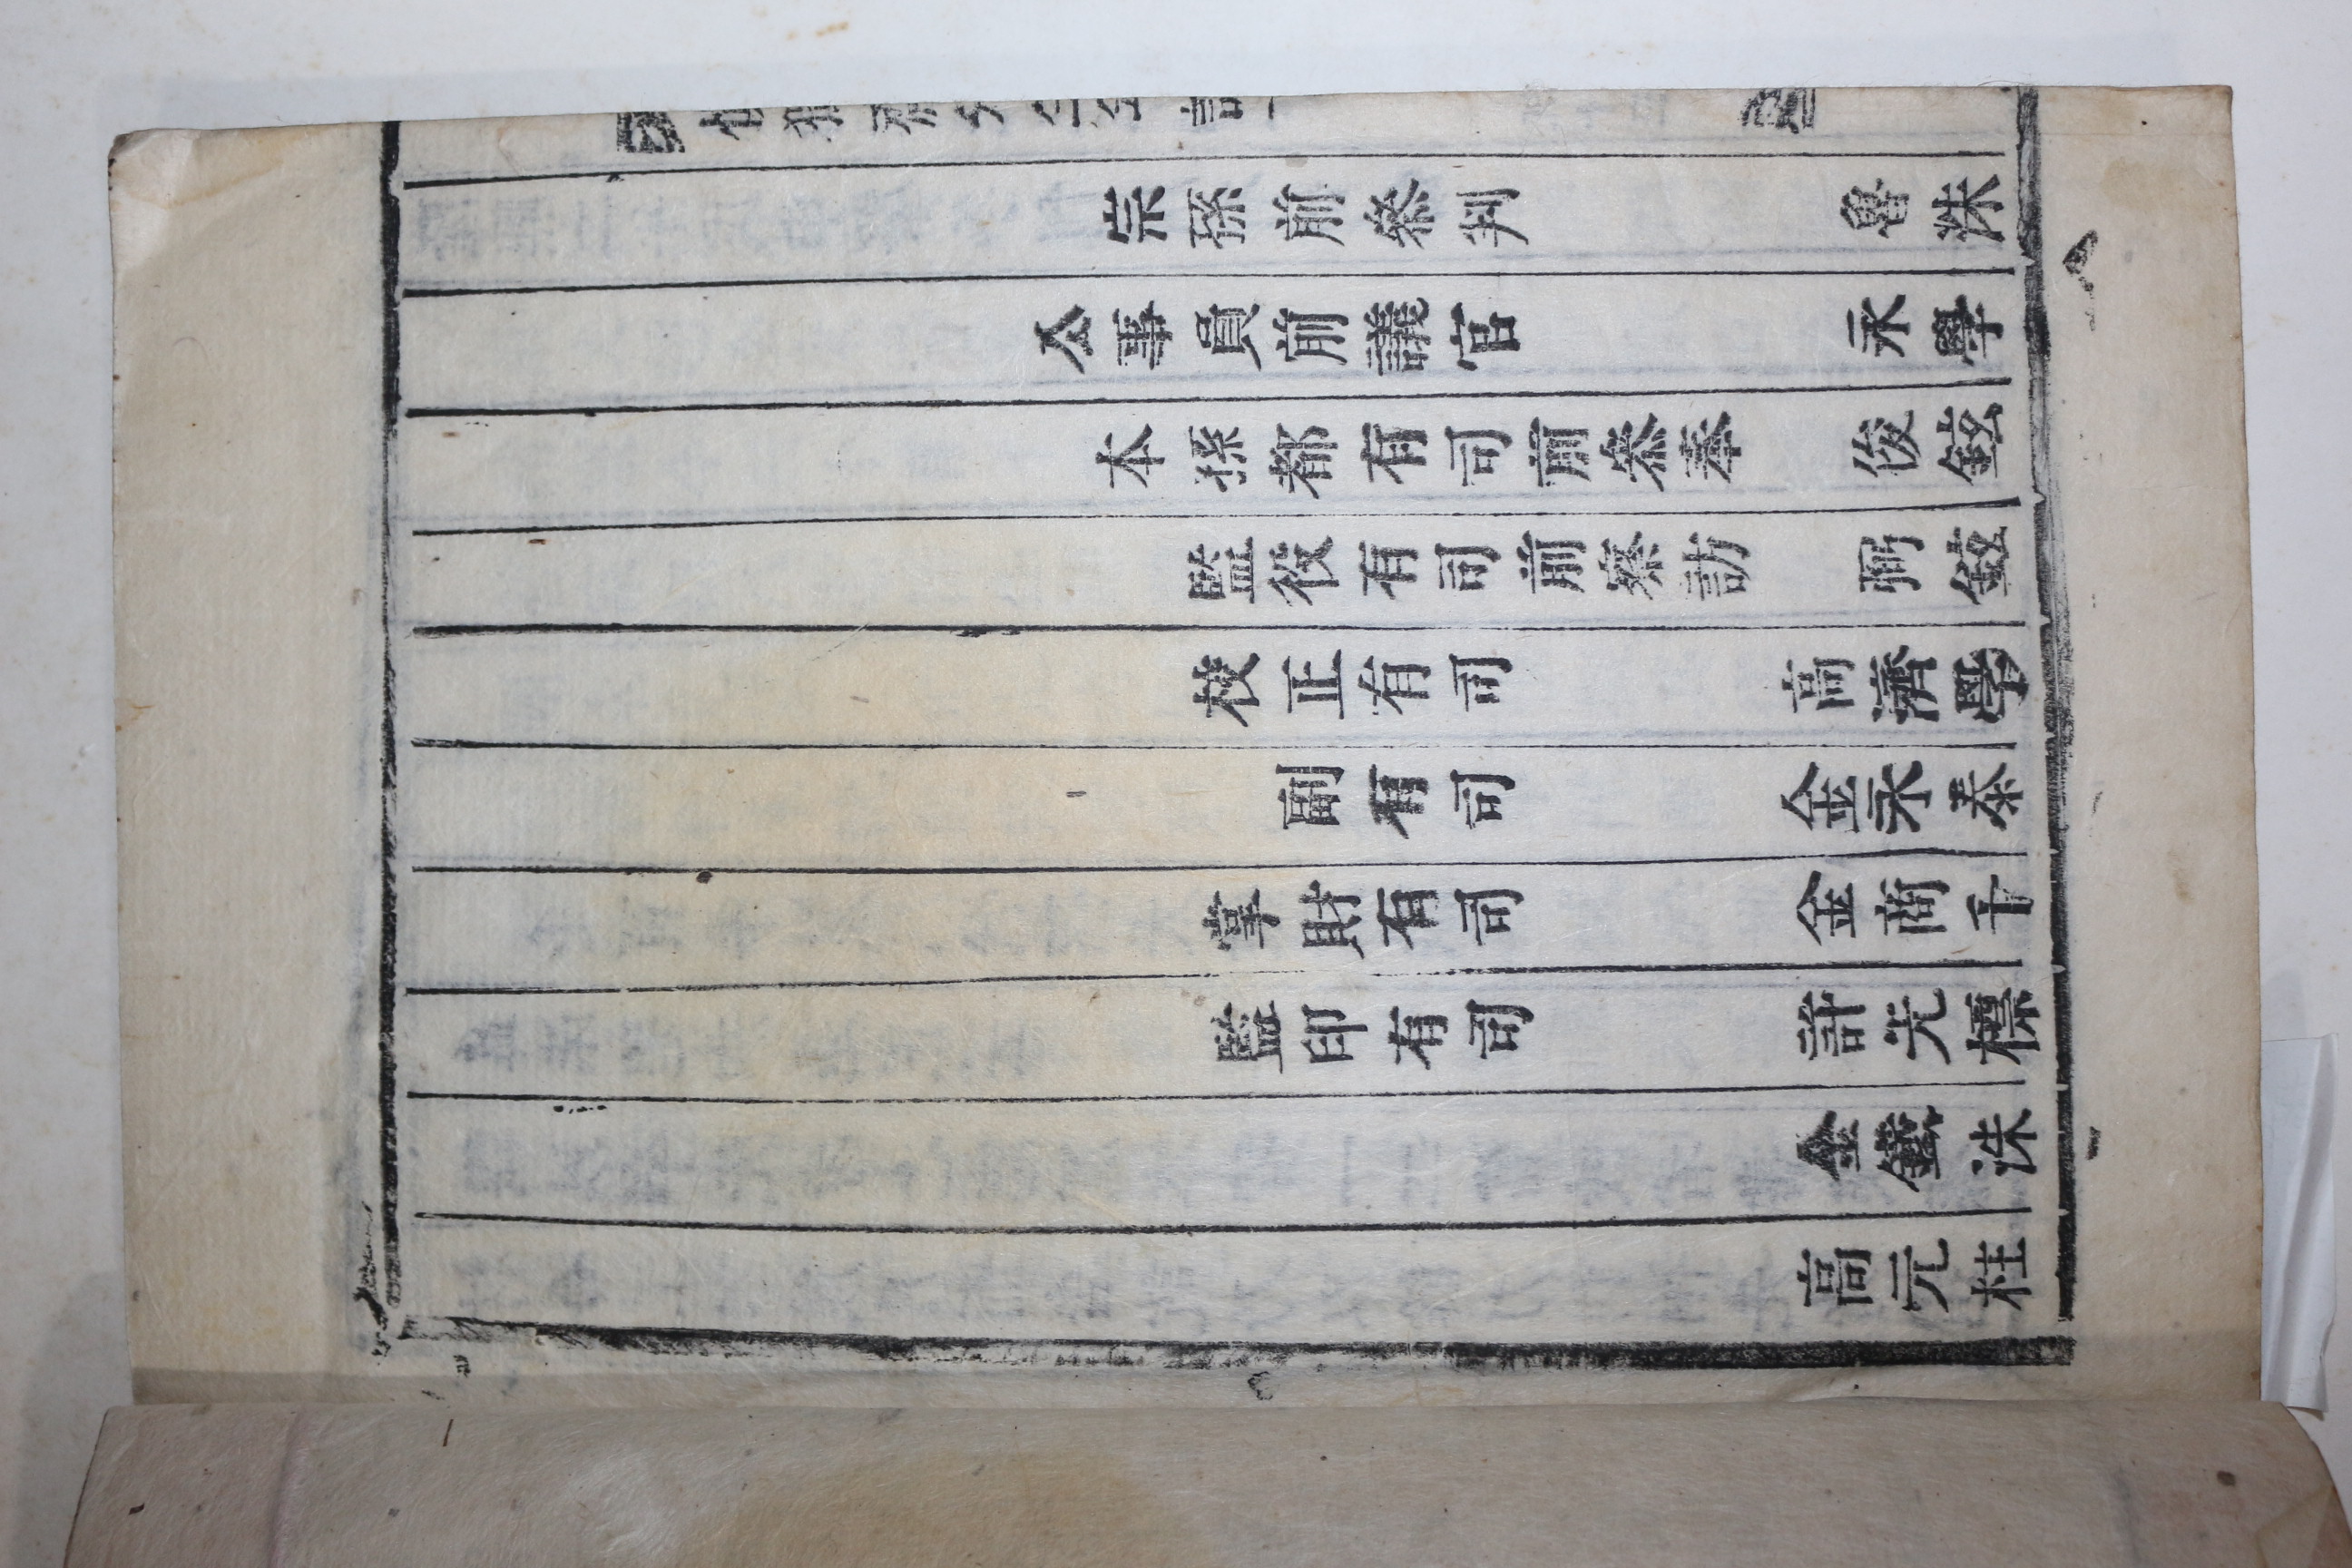 宗孫前叅判 魯洙
公事員前議官 永學
本孫都有司前叅奉 俊鉉
監役有司前察訪 鉉
校正有司 高濟學
副有司 金永泰
掌財有司 金商千
監印有司 許先標
金鐵洙
高元柱